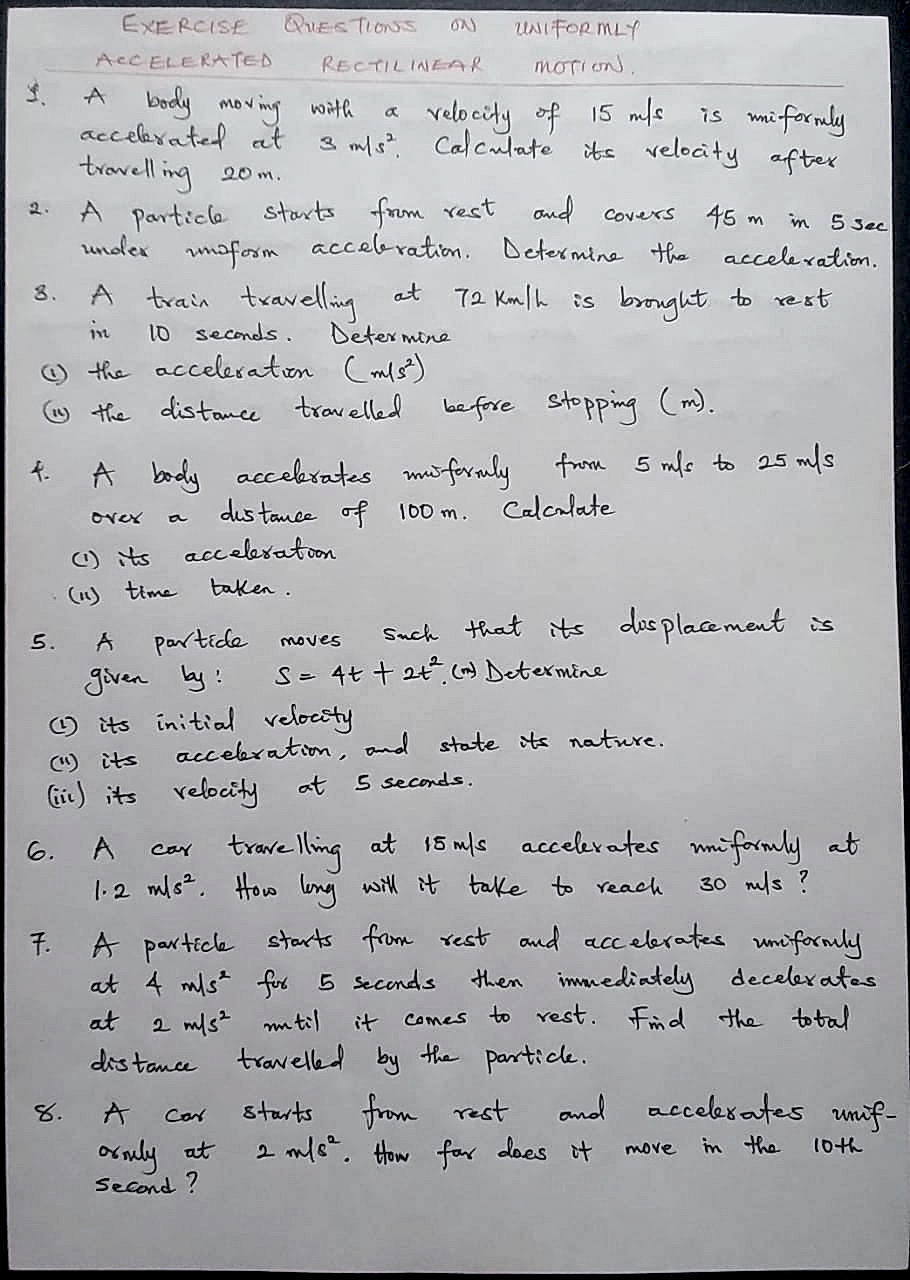 EXERCISE QUESTIONS ON UNIFORMLY
ACCELERATED RECTILINEAR MOTION.
1. A body moving with a velocity of 15 m/s is uniformly
accelerated at 3 m/s². Calculate its velocity after
travelling 20m.
2. A particle starts from rest and covers 45 m in 5 sec
under uniform acceleration. Determine the acceleration.
3. A train travelling at 72 Km/h is brought to rest
in 10 seconds. Determine
(i) the acceleration (m/s²)
(ii) the distance travelled before stopping (m).
4. A body accelerates uniformly from 5 m/s to 25 m/s
over a distance of 100 m. Calculate
(i) its acceleration
(ii) time taken.
5. A particle moves such that its displacement is
given by: S = 4t + 2t². (m) Determine
(i) its initial velocity
(ii) its acceleration, and state its nature.
(iii) its velocity at 5 seconds.
6. A car travelling at 15 m/s accelerates uniformly at
1.2 m/s². How long will it take to reach 30 m/s?
7. A particle starts from rest and accelerates uniformly
at 4 m/s² for 5 seconds then immediately decelerates
at 2 m/s² until it comes to rest. Find the total
distance travelled by the particle.
8. A car starts from rest and accelerates unif-
ormly at 2 m/s². How far does it move in the 10th
second?